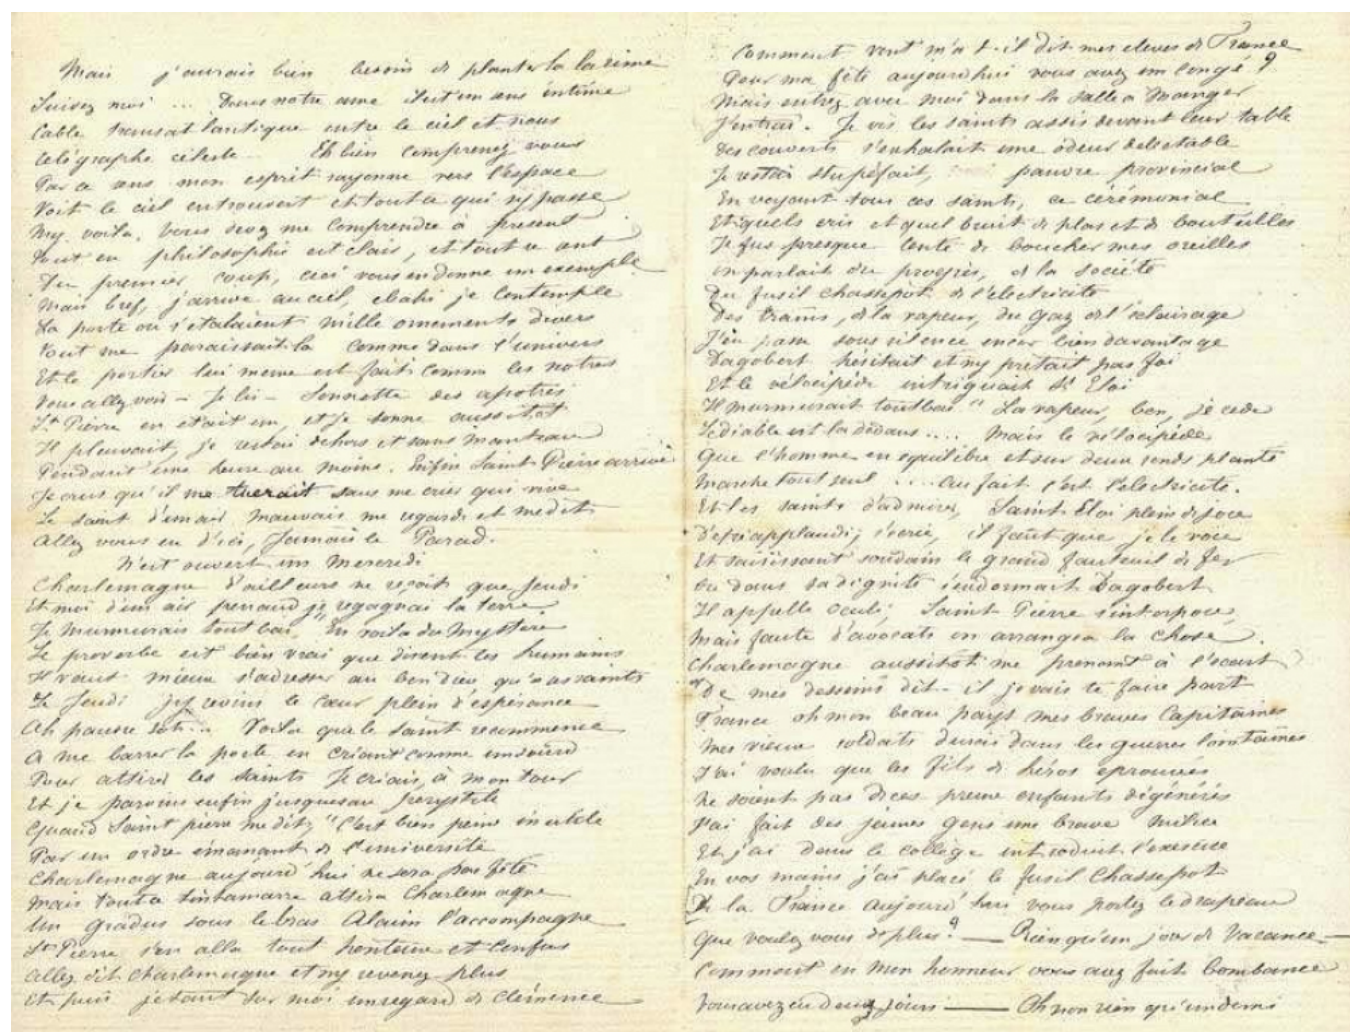 Mais j'aurais bien besoin de planter là la rime
Suivez moi ... Dans notre ame il est un sens intime
Cable transatlantique entre le ciel et nous
télégraphe céleste .. Eh bien comprenez vous
Par ce sens mon esprit rayonne vers l'espace
Voit le ciel entrouvert et tout ce qui s'y passe
M'y voila, vous devez me comprendre à présent
Tout en philosophie est clair, et tout ce
Du premier coup, ceci vous en donne un exemple
Mais bref, j'arrive au ciel, ebahi je contemple
La porte ou s'étalaient mille ornements divers
Tout me paraissait là comme dans l'univers
Et le portier lui meme est fait comme les notres
Vous allez voir - Je lis - Sonnette des apotres
St Pierre en était un, et je sonne aussitot
Il pleuvait, je restai dehors et sans manteau
Pendant une heure au moins. Enfin Saint Pierre arrive
Je crus qu'il me tuerait sans me crier qui vive
Le saint d'un air mauvais me regarde et me dit
Allez vous en d'ici, Jamais le Parad.
N'est ouvert un Mercredi
Charlemagne d'ailleurs ne reçoit que Jeudi
Et moi d'un air penaud je regagnai la terre
Je murmurais tout bas, "En voila du mystère
Le proverbe est bien vrai que disent les humains
Il vaut mieux s'adresser au bon dieu qu'a ses saints
Le Jeudi j'y revins le cœur plein d'espérance
Ah pauvre sot... Voila que le saint recommence
A me barrer la porte en criant comme un sourd
Pour attirer les saints Je criais, à mon tour
Et je parvins enfin jusques au perystile
Quand Saint pierre me dit, "C'est bien peine inutile
Par un ordre émanant de l'université
Charlemagne aujourd'hui ne sera pas fêté
Mais tout ce tintamarre attira Charlemagne
Un gradus sous le bras Alcuin l'accompagne
St Pierre s'en alla tout honteux et confus
Allez dit Charlemagne et n'y revenez plus
Et puis jetant sur moi un regard de clémence
Comment vont m'a t-il dit mes eleves de France
Pour ma fête aujourd'hui vous avez un congé ?
Mais entrez avec moi dans la salle a manger
J'entrai. Je vis les saints assis devant leur table
Des couverts s'exhalait une odeur delectable
Je restai stupéfait, pauvre provincial
En voyant tous ces saints, ce cérémonial
Et quels cris et quel bruit de plats et de bouteilles
Je fus presque tenté de boucher mes oreilles
On parlait du progrès, de la société
Du fusil Chassepot de l'electricité
Des trams, de la vapeur, du gaz de l'éclairage
J'en passe sous silence encor bien davantage
Dagobert hésitait et n'y prétait pas foi
Et le vélocipède intriguait St Eloi
Il murmurait tout bas "La vapeur, bon, je cede
Le diable est la dedans .... Mais le vélocipède
Que l'homme en equilibre et sur deux ronds planté
Marche tout seul .... au fait c'est l'electricité.
Et les saints d'admirer, Saint Eloi plein de joie
D'etre applaudi, s'ecrie, il faut que je le voie
Et saisissant soudain le grand fauteuil de fer
Ou dans sa dignité s'endormait Dagobert
Il appelle Saint Pierre s'interpose,
Mais faute d'avocats on arrangea la chose.
Charlemagne aussitot me prenant à l'écart
"De mes desseins dit-il je vais te faire part
France oh mon beau pays mes braves Capitaines
Mes vieux soldats durcis dans les guerres lointaines
J'ai voulu que les fils de héros eprouvés
Ne soient pas de ces preux enfants dégénérés
J'ai fait des jeunes gens une brave milice
Et j'ai dans le collège introduit l'exercice
En vos mains j'ai placé le fusil Chassepot
De la France aujourd'hui vous portez le drapeau
Que voulez vous de plus ? — Rien qu'un jour de Vacance —
Comment en mon honneur vous avez fait bombance
Vous avez eu deux jours — Oh non rien qu'un demi